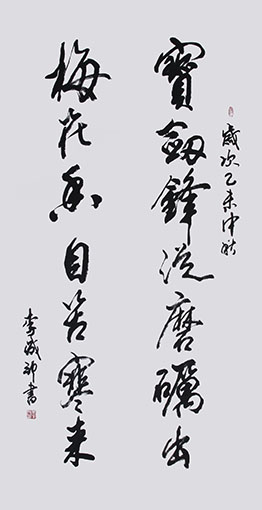 歲次乙未中秋
寶劍鋒從磨礪出
梅花香自苦寒来
李 書